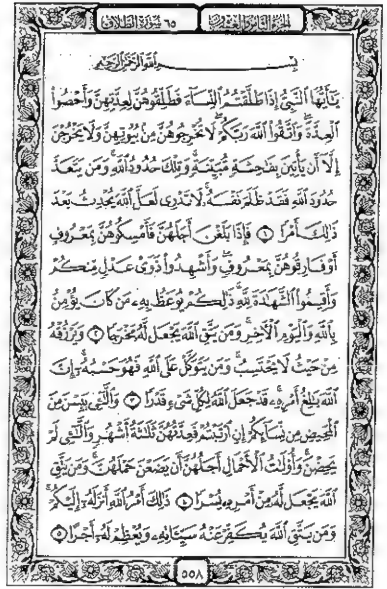 الجزء الثامن والعشرون
٦٥ سورة الطلاق
بِسْمِ اللَّهِ الرَّحْمَٰنِ الرَّحِيمِ
يَٰٓأَيُّهَا ٱلنَّبِيُّ إِذَا طَلَّقْتُمُ ٱلنِّسَآءَ فَطَلِّقُوهُنَّ لِعِدَّتِهِنَّ وَأَحْصُوا۟
ٱلْعِدَّةَ وَٱتَّقُوا۟ ٱللَّهَ رَبَّكُمْ لَا تُخْرِجُوهُنَّ مِنۢ بُيُوتِهِنَّ وَلَا يَخْرُجْنَ
إِلَّآ أَن يَأْتِينَ بِفَٰحِشَةٍ مُّبَيِّنَةٍ وَتِلْكَ حُدُودُ ٱللَّهِ وَمَن يَتَعَدَّ
حُدُودَ ٱللَّهِ فَقَدْ ظَلَمَ نَفْسَهُۥ لَا تَدْرِى لَعَلَّ ٱللَّهَ يُحْدِثُ بَعْدَ
ذَٰلِكَ أَمْرًا ١ فَإِذَا بَلَغْنَ أَجَلَهُنَّ فَأَمْسِكُوهُنَّ بِمَعْرُوفٍ
أَوْ فَارِقُوهُنَّ بِمَعْرُوفٍ وَأَشْهِدُوا۟ ذَوَىْ عَدْلٍ مِّنكُمْ
وَأَقِيمُوا۟ ٱلشَّهَٰدَةَ لِلَّهِ ذَٰلِكُمْ يُوعَظُ بِهِۦ مَن كَانَ يُؤْمِنُ
بِٱللَّهِ وَٱلْيَوْمِ ٱلْءَاخِرِ وَمَن يَتَّقِ ٱللَّهَ يَجْعَل لَّهُۥ مَخْرَجًا ٢ وَيَرْزُقْهُ
مِنْ حَيْثُ لَا يَحْتَسِبُ وَمَن يَتَوَكَّلْ عَلَى ٱللَّهِ فَهُوَ حَسْبُهُۥٓ إِنَّ
ٱللَّهَ بَٰلِغُ أَمْرِهِۦ قَدْ جَعَلَ ٱللَّهُ لِكُلِّ شَىْءٍ قَدْرًا ٣ وَٱلَّٰٓـِٔى يَئِسْنَ مِنَ
ٱلْمَحِيضِ مِن نِّسَآئِكُمْ إِنِ ٱرْتَبْتُمْ فَعِدَّتُهُنَّ ثَلَٰثَةُ أَشْهُرٍ وَٱلَّٰٓـِٔى لَمْ
يَحِضْنَ وَأُو۟لَٰتُ ٱلْأَحْمَالِ أَجَلُهُنَّ أَن يَضَعْنَ حَمْلَهُنَّ وَمَن يَتَّقِ
ٱللَّهَ يَجْعَل لَّهُۥ مِنْ أَمْرِهِۦ يُسْرًا ٤ ذَٰلِكَ أَمْرُ ٱللَّهِ أَنزَلَهُۥٓ إِلَيْكُمْ
وَمَن يَتَّقِ ٱللَّهَ يُكَفِّرْ عَنْهُ سَيِّـَٔاتِهِۦ وَيُعْظِمْ لَهُۥٓ أَجْرًا ٥
٥٥٨